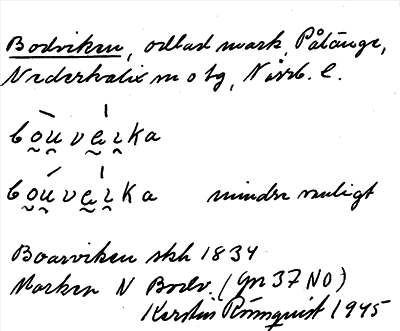 Bodviken, odlad mark, Pålänge,
Nederkalix sn o tg, Nörrb. l.
bo̰ṵve̬ɪ̯ka
bo̰ṵve̬ɪ̯ka mindre vanligt
Boarviken skh 1834
Marken N Bodv. (gm 37 NO)
Kerstin Rönnquist 1945